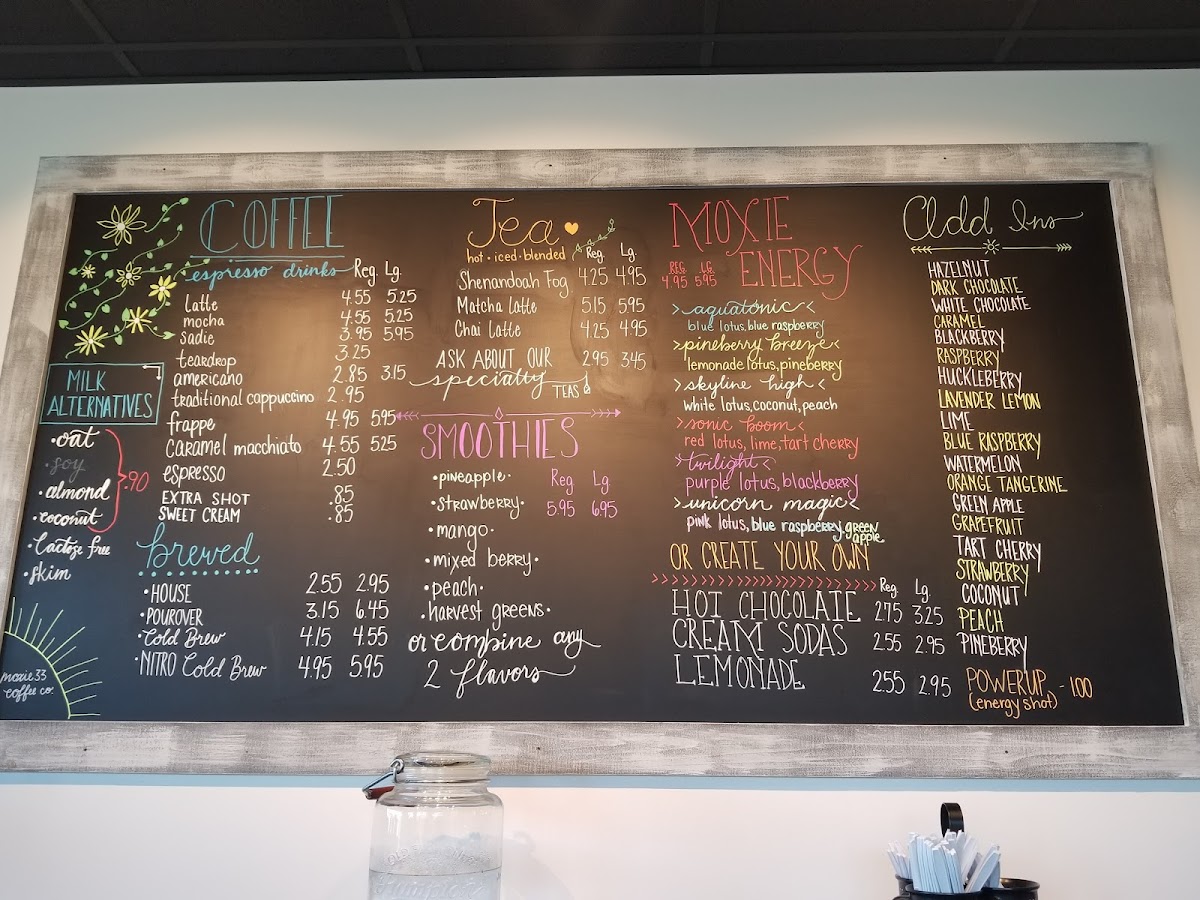 COFFEE
espresso drinks Reg. Lg.
Latte 4.55 5.25
mocha 4.55 5.25
sadie 3.95 5.95
teardrop 3.25
americano 2.85 3.15
traditional cappuccino 2.95
frappe 4.95 5.95
Caramel macchiato 4.55 5.25
espresso 2.50
EXTRA SHOT .85
SWEET CREAM .85
MILK
ALTERNATIVES
•oat
•soy
•almond
•coconut
.90
•Lactose free
•skim
moxie 33
coffee co.
brewed
•HOUSE 2.55 2.95
•POUROVER 3.15 6.45
•Cold Brew 4.15 4.55
•NITRO Cold Brew 4.95 5.95
Tea
hot • iced • blended Reg. Lg.
Shenandoah Fog 4.25 4.95
Matcha Latte 5.15 5.95
Chai Latte 4.25 4.95
ASK ABOUT OUR 2.95 3.45
specialty TEAS
SMOOTHIES
•pineapple• Reg Lg.
•strawberry• 5.95 6.95
•mango•
•mixed berry•
•peach•
•harvest greens•
or combine any
2 flavors
MOXIE
ENERGY
REG LG
4.95 5.95
>aquatonic<
blue lotus, blue raspberry
>pineberry breeze<
lemonade lotus, pineberry
>skyline high<
white lotus, coconut, peach
>sonic boom<
red lotus, lime, tart cherry
>twilight<
purple lotus, blackberry
>unicorn magic<
pink lotus, blue raspberry, green
apple
OR CREATE YOUR OWN
Reg. Lg.
HOT CHOCOLATE 2.75 3.25
CREAM SODAS 2.55 2.95
LEMONADE 2.55 2.95
Add Ins
HAZELNUT
DARK CHOCOLATE
WHITE CHOCOLATE
CARAMEL
BLACKBERRY
RASPBERRY
HUCKLEBERRY
LAVENDER LEMON
LIME
BLUE RASPBERRY
WATERMELON
ORANGE TANGERINE
GREEN APPLE
GRAPEFRUIT
TART CHERRY
STRAWBERRY
COCONUT
PEACH
PINEBERRY
POWERUP - 1.00
(energy shot)